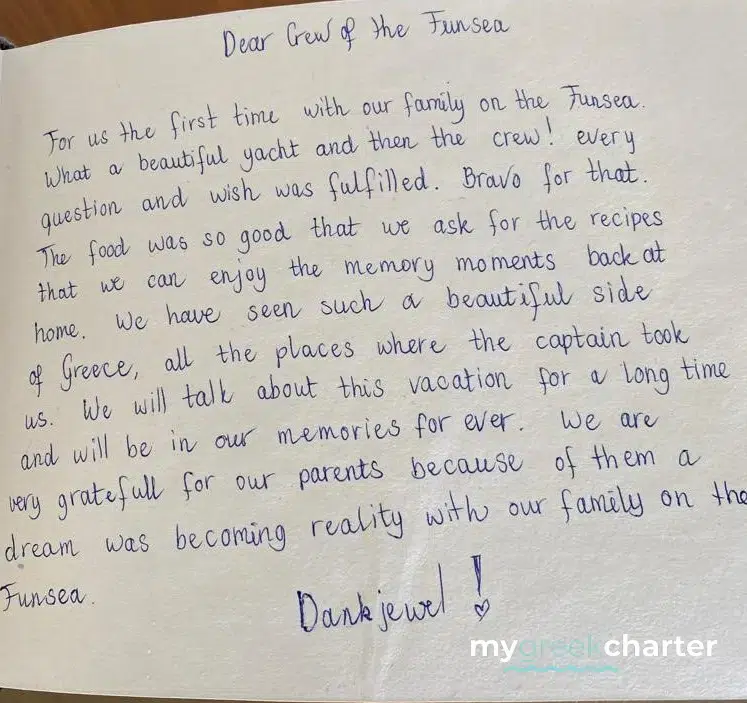 Dear Crew of the Funsea
For us the first time with our family on the Funsea.
What a beautiful yacht and then the crew! every
question and wish was fulfilled. Bravo for that.
The food was so good that we ask for the recipes
that we can enjoy the memory moments back at
home. We have seen such a beautiful side
of Greece, all the places where the captain took
us. We will talk about this vacation for a long time
and will be in our memories for ever. We are
very gratefull for our parents because of them a
dream was becoming reality with our family on the
Funsea.
Dankjewel!
mygreekcharter